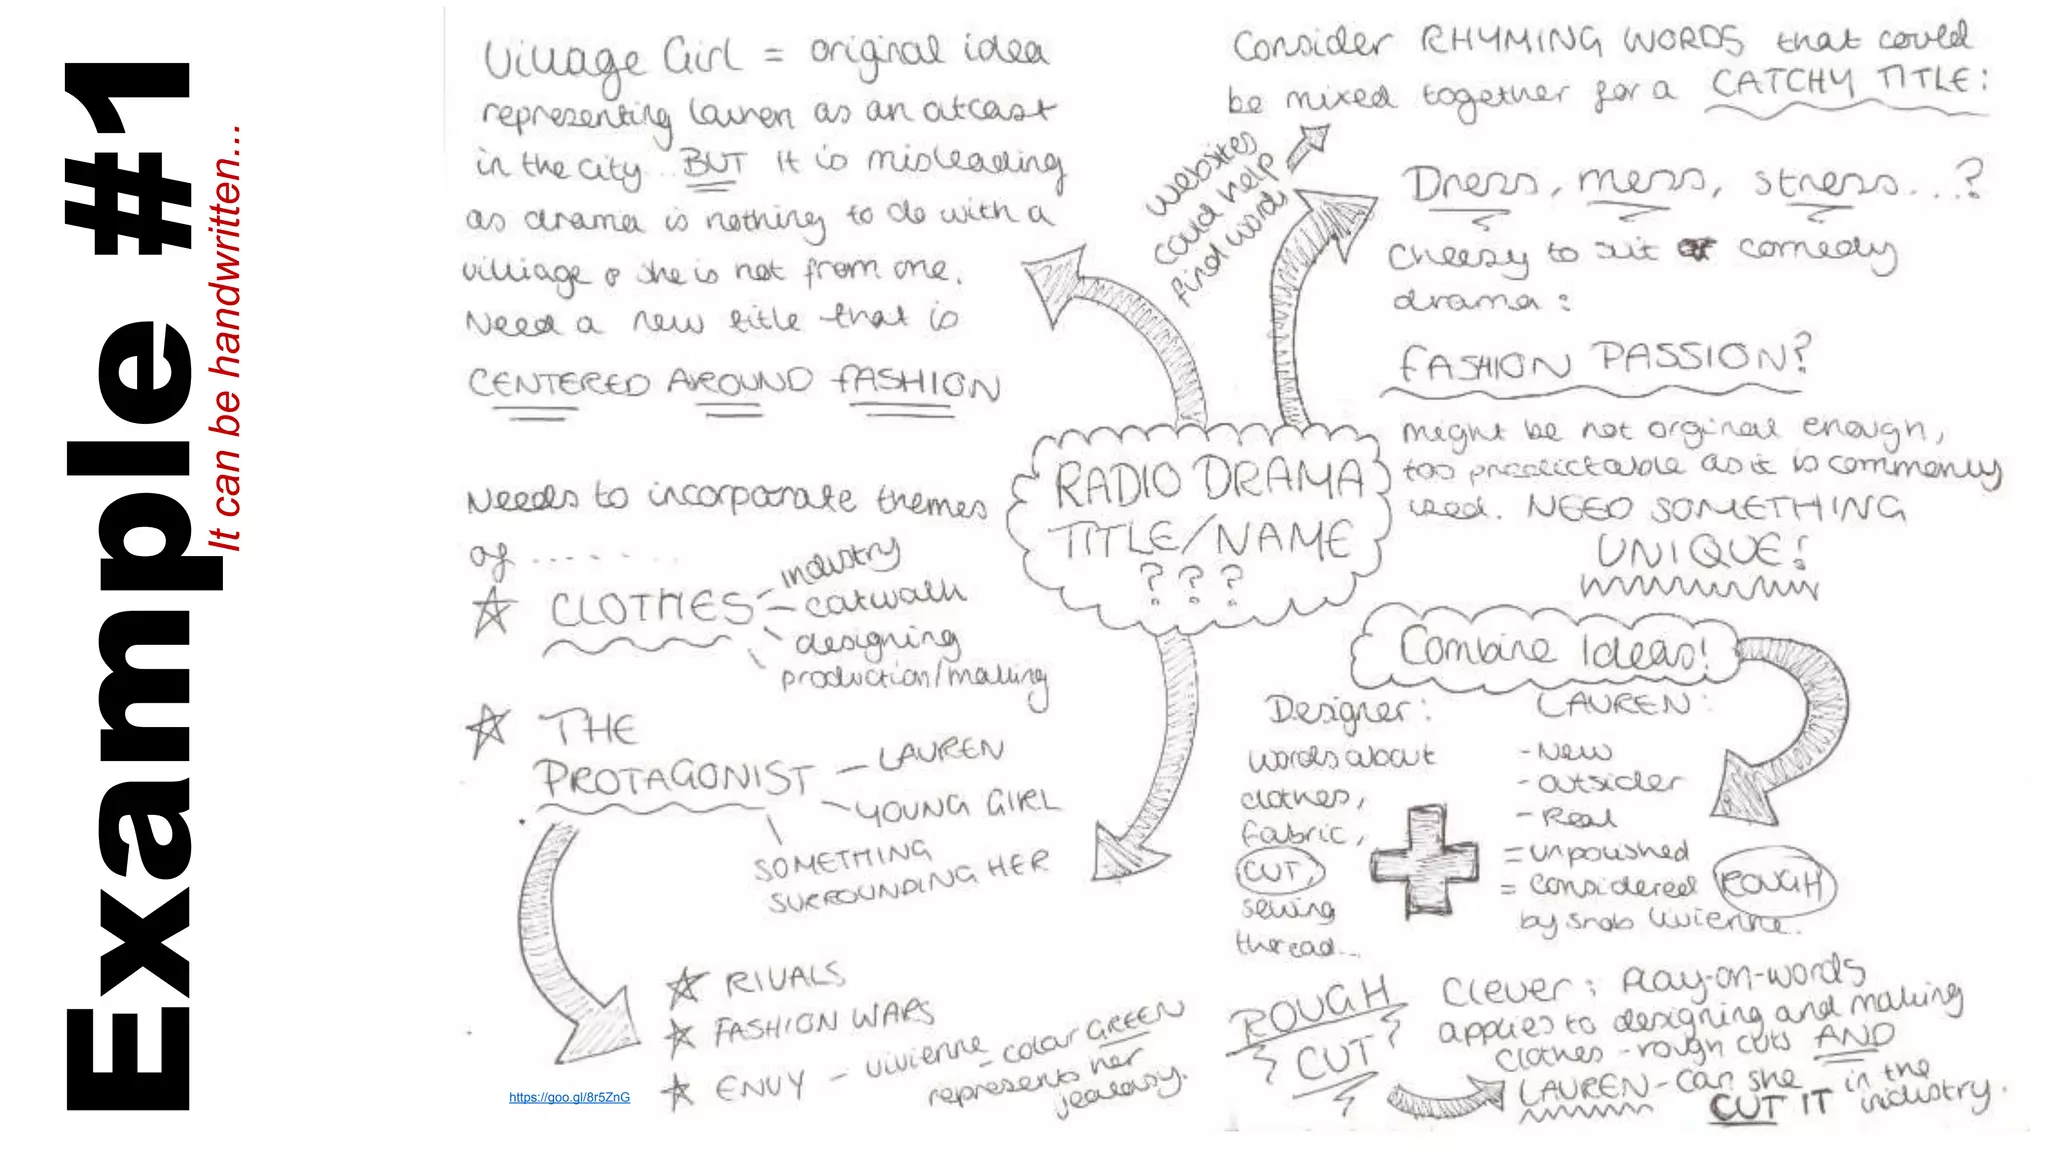 Example #1
It can be handwritten...
Village Girl = original idea
representing Lauren as an outcast
in the city... BUT it is misleading
as drama is nothing to do with a
villiage & she is not from one.
Need a new title that is
CENTERED AROUND FASHION
Needs to incorporate themes
of .......
CLOTHES - industry
- catwalk
designing
production/making
THE
PROTAGONIST - LAUREN
- YOUNG GIRL
SOMETHING
SURROUNDING HER
RIVALS
FASHION WARS
ENVY - vivienne - colour GREEN
represents her
jealousy.
https://goo.gl/8r5ZnG
RADIO DRAMA
TITLE/NAME
? ? ?
Consider RHYMING WORDS that could
be mixed together for a CATCHY TITLE:
websites
could help
find words
Dress, mess, stress...?
Cheesy to suit comedy
drama:
FASHION PASSION?
might be not orginal enough,
too predictable as it is commonly
used. NEED SOMETHING
UNIQUE!
Combine Ideas!
Designer:
words about
clothes,
fabric,
CUT,
sewing
thread...
LAUREN:
- New
- outsider
- Real
= unpolished
= considered ROUGH
by snob Vivienne.
ROUGH
CUT
Clever: Play-on-words
applies to designing and making
clothes - rough cuts AND
LAUREN - can she
CUT IT in the
industry.